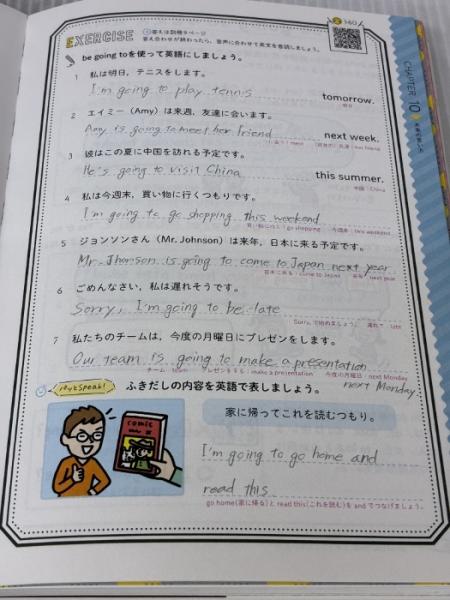 EXERCISE
答え合わせが終わったら、音声に合わせて英文を音読しましょう。
CHAPTER 10
be going toを使って英語にしましょう。
1 私は明日、テニスをします。
I'm going to play tennis tomorrow.
明日
2 エイミー(Amy)は来週、友達に会います。
Amy is going to meet her friend next week.
meet her friend
3 彼はこの夏に中国を訪れる予定です。
He's going to visit China this summer.
中国 China
4 私は今週末、買い物に行くつもりです。
I'm going to go shopping this weekend
買い物に行く go shopping 今週末 this weekend
5 ジョンソンさん(Mr. Johnson)は来年、日本に来る予定です。
Mr. Jhonson is going to come to Japan next year
日本に来る come to Japan 来年 next year
6 ごめんなさい、私は遅れそうです。
Sorry, I'm going to be late
Sorry, で始めましょう。 遅れて late
7 私たちのチームは、今度の月曜日にプレゼンをします。
Our team is going to make a presentation
next Monday
チーム team プレゼンをする make a presentation 今度の月曜日 next Monday
Let's Speak!
ふきだしの内容を英語で表しましょう。
comic
家に帰ってこれを読むつもり。
I'm going to go home and
read this
go home(家に帰る)と read this(これを読む)を and でつなげましょう。